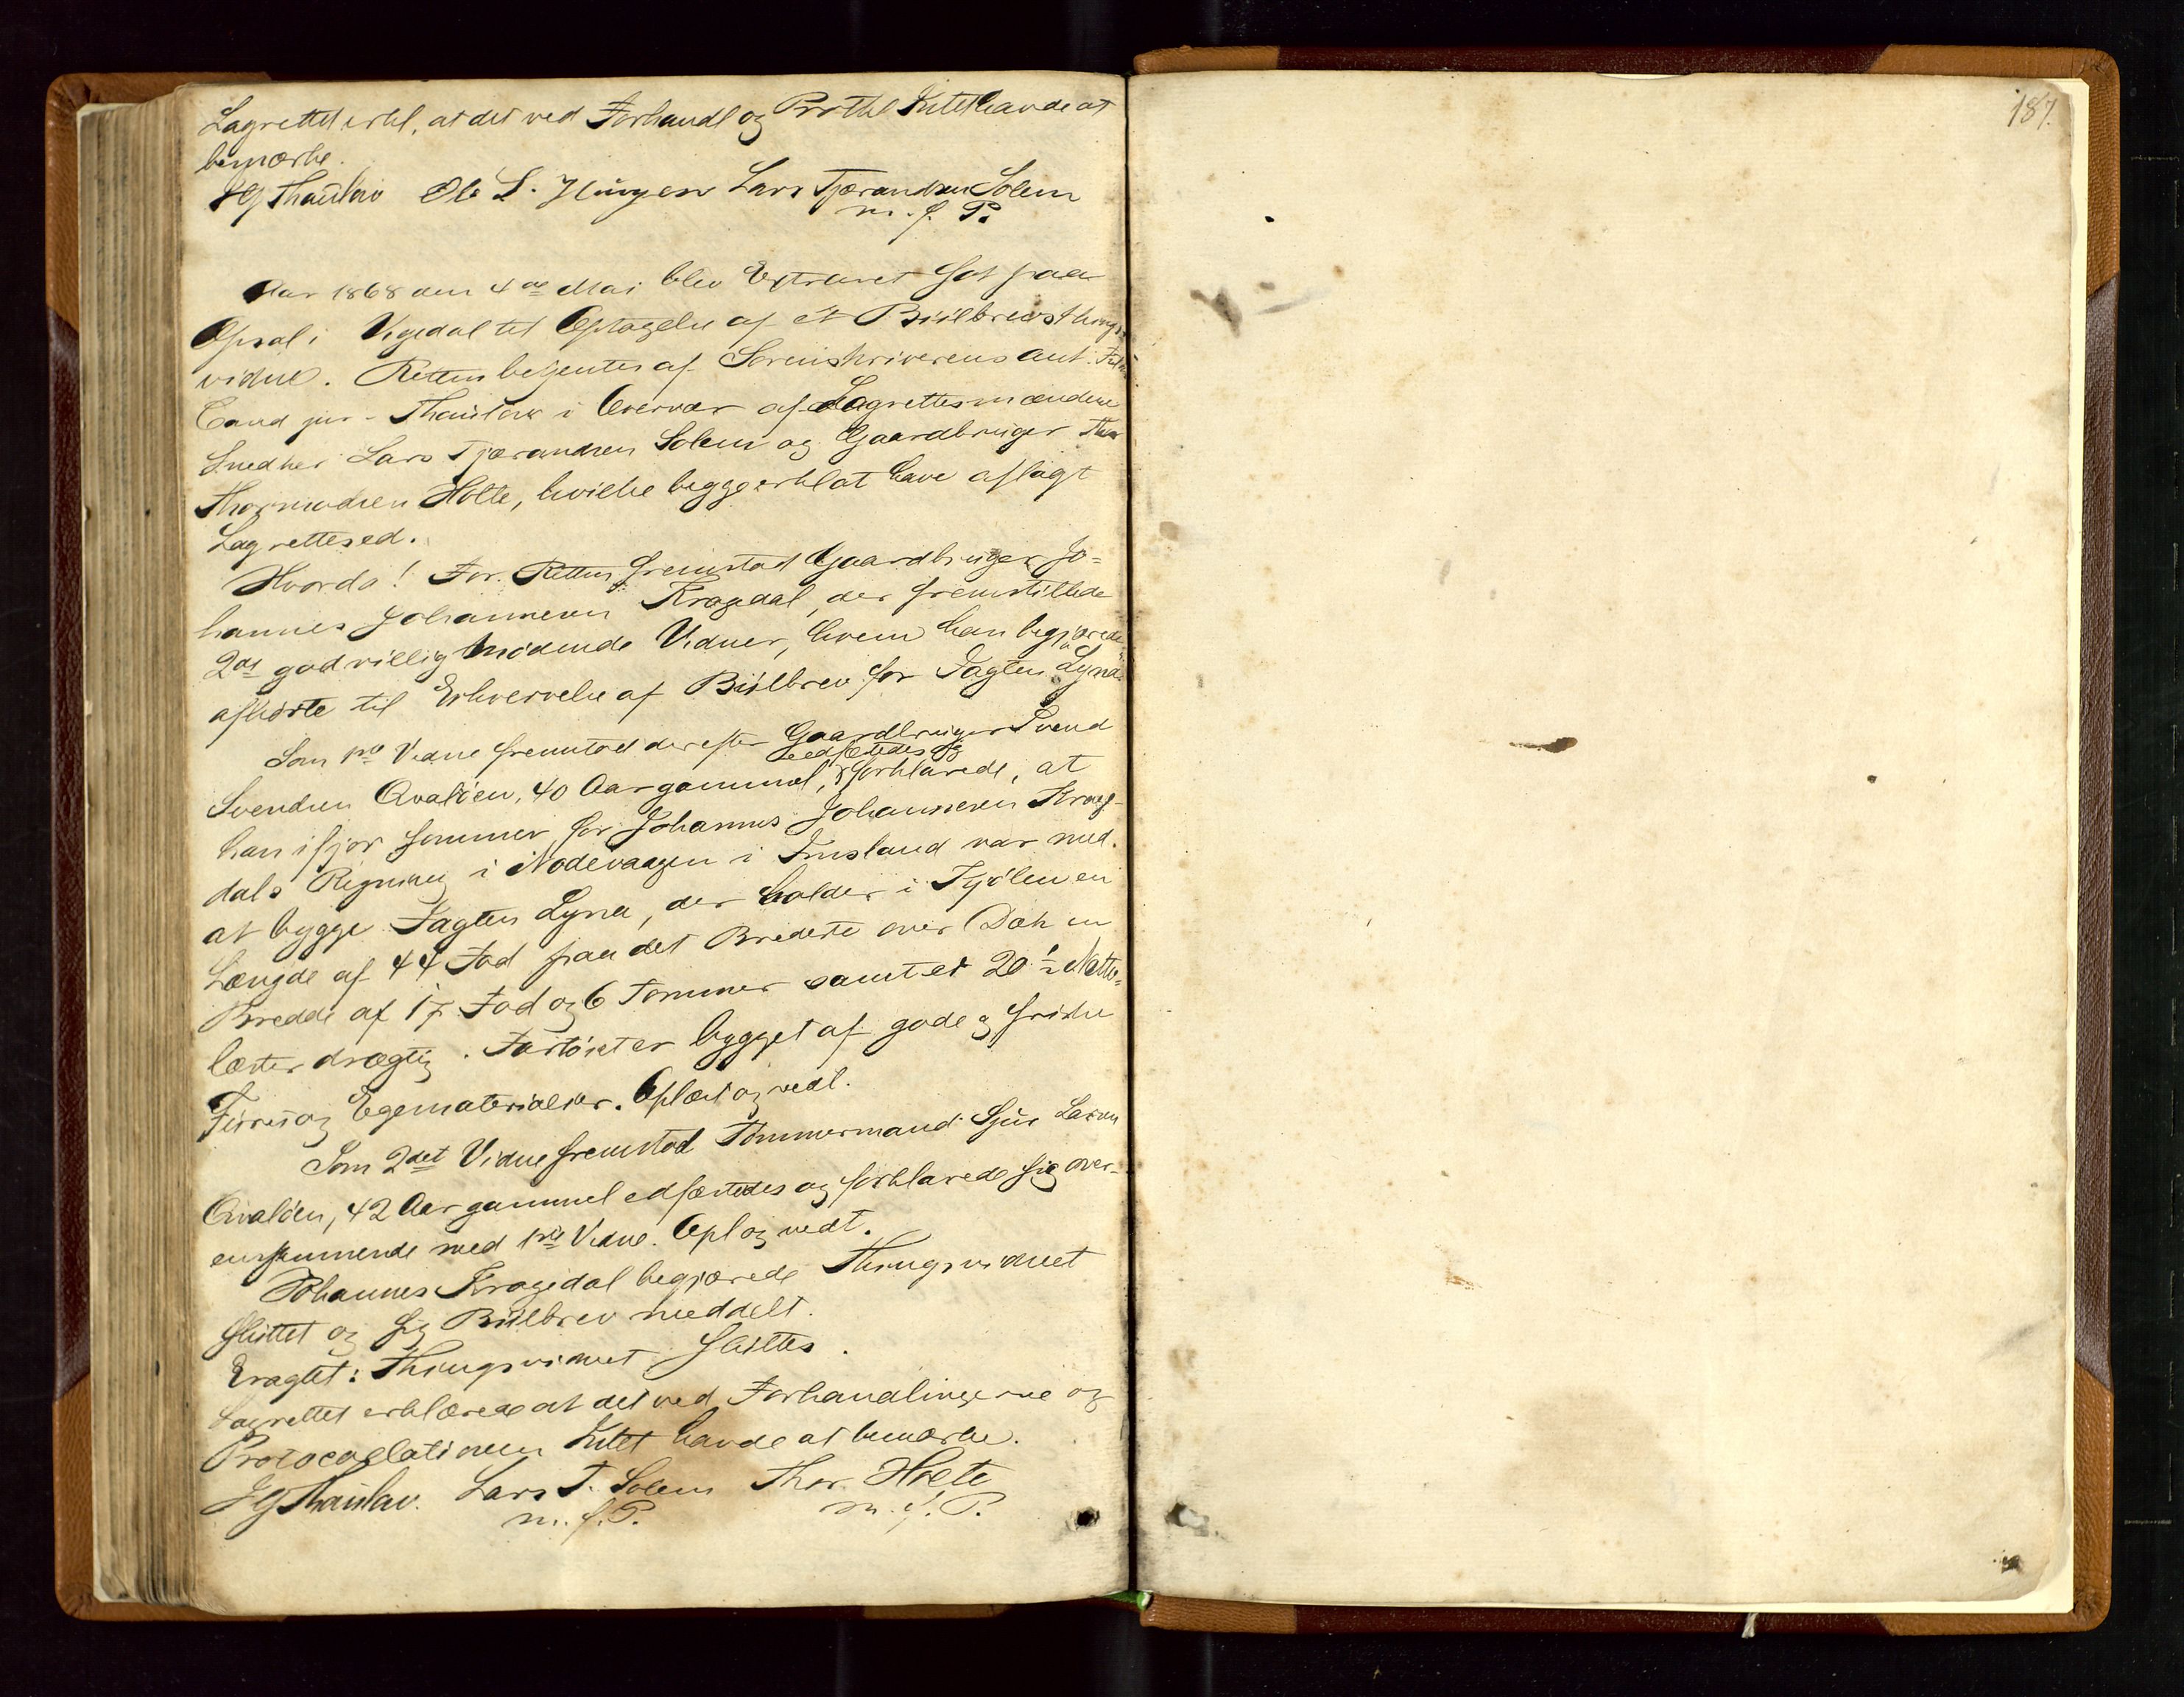 Lagrettet erkl. at det ved Forhandl og Protkl Intet havde at
bemærke.
HGThaulow Ole L. Lars Tjærandsen Solem
m. f. P.
Aar 1868 den 4de Mai blev Extraret sat paa
Opsal i Vigedal til Optagelse af et Biilbrevsthings
vidne. Retten betjentes af Sorenskriverens aut. Fuldm
Cand jur. Thaulow i Overvær af Lagrettesmændene
Snedker Lars Tjærandsen Solem og Gaardbruger Thor
Thormodsen Holte, hvilke begge erkl at have aflagt
Lagrettesed.
Hvorda! For Retten fremstod Gaardbruger Jo=
hannes Johannesen Kragedal, der fremstillede
2de godvillig mødende Vidner, hvem han begjærede
afhørte til Erhvervelse af Biilbrev for Jagten Lyna.
Som 1ste Vidne fremstod derefter Gaardbruger Svend
edfæstedes og
Svendsen Qvaløen, 40 Aar gammel, forklarede, at
han ifjor Sommer for Johannes Johannesen Krage-
dals Regning i Nodevaagen i Imsland var med
at bygge Jagten Lyna, der holder i Kjølen en
Længde af 44 Fod paa det Bredeste over Dæk en
Bredde af 17 Fod og 6 Tommer samt er 20 1/2 Notte=
læster drægtig. Fartøiet er bygget af gode og friske
Furu og Egematerialier. Oplæst og vedt.
Som 2det Vidne fremstod Tømmermand Sjur Larsen
Qvaløen, 42 Aar gammel edfæstedes og forklarede sig over-
ensstemmende med 1ste Vidne. Opl og vedt.
Johannes Kragedal begjærede Thingsvidnet
sluttet og sig Biilbrev meddelt.
Eragtet: Thingsvidnet sluttes.
Lagrettet erklærede at det ved Forhandlingerne og
Protocollationen Intet havde at bemærke.
HGThaulow. Lars T. Solem Thor Holte
m. f. P. m. f. P.
187.